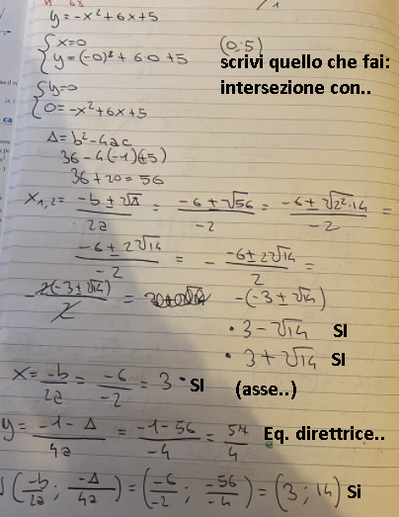 y = -x² + 6x + 5
{ x=0
{ y = (-0)² + 6·0 + 5 (0;5)
scrivi quello che fai:
intersezione con..
{ y=0
{ 0 = -x² + 6x + 5
Δ = b² - 4ac
36 - 4(-1)(+5)
36 + 20 = 56
x₁,₂ = (-b ± √Δ)/2a = (-6 ± √56)/-2 = (-6 ± √2²·14)/-2 =
(-6 ± 2√14)/-2 = - (-6 ± 2√14)/2 =
- 2(-3 ± √14)/2 = -(-3 ± √14)
• 3 - √14 SI
• 3 + √14 SI
x = -b/2a = -6/-2 = 3 • SI (asse..)
y = (-1 - Δ)/4a = (-1 - 56)/-4 = 54/4 Eq. direttrice..
(-b/2a ; -Δ/4a) = (-6/-2 ; -56/-4) = (3 ; 14) Si